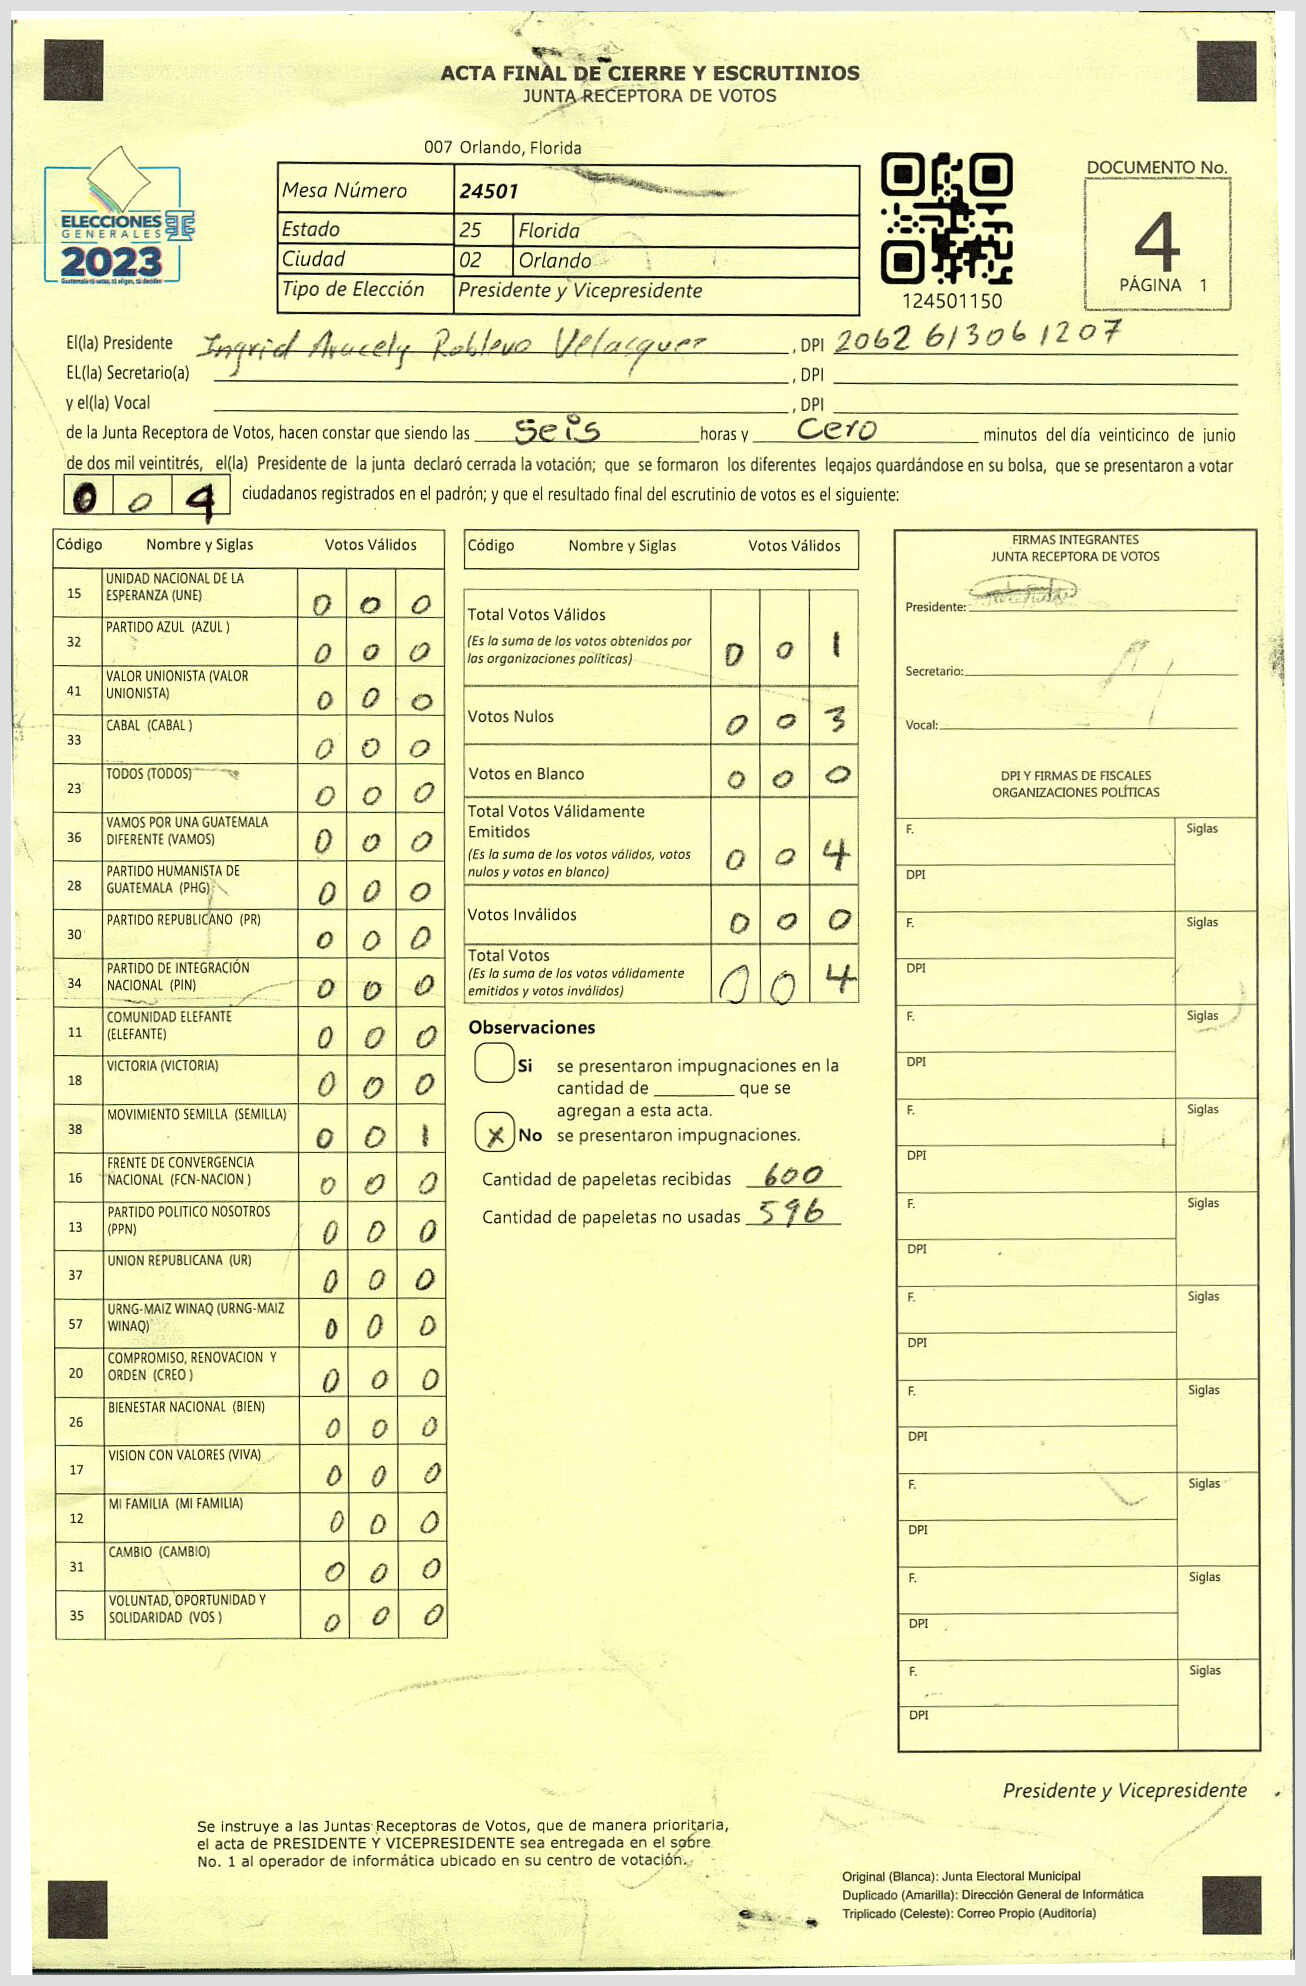 ACTA FINAL DE CIERRE Y ESCRUTINIOS
JUNTA RECEPTORA DE VOTOS
007 Orlando, Florida
ELECCIONES
GENERALES
2023
Mesa Número 24501
Estado 25 Florida
Ciudad 02 Orlando
Tipo de Elección Presidente y Vicepresidente
124501150
DOCUMENTO No.
4
PÁGINA 1
El(la) Presidente Ingrid Aracely Roblero Velasquez, DPI 2062 613061207
EL(la) Secretario(a) , DPI
y el(la) Vocal , DPI
de la Junta Receptora de Votos, hacen constar que siendo las seis horas y cero minutos del día veinticinco de junio
de dos mil veintitrés, el(la) Presidente de la junta declaró cerrada la votación; que se formaron los diferentes legajos guardándose en su bolsa, que se presentaron a votar
0 0 4 ciudadanos registrados en el padrón; y que el resultado final del escrutinio de votos es el siguiente:
Código Nombre y Siglas Votos Válidos
15 UNIDAD NACIONAL DE LA
ESPERANZA (UNE) 0 0 0
32 PARTIDO AZUL (AZUL ) 0 0 0
41 VALOR UNIONISTA (VALOR
UNIONISTA) 0 0 0
33 CABAL (CABAL ) 0 0 0
23 TODOS (TODOS) 0 0 0
36 VAMOS POR UNA GUATEMALA
DIFERENTE (VAMOS) 0 0 0
28 PARTIDO HUMANISTA DE
GUATEMALA (PHG) 0 0 0
30 PARTIDO REPUBLICANO (PR) 0 0 0
34 PARTIDO DE INTEGRACIÓN
NACIONAL (PIN) 0 0 0
11 COMUNIDAD ELEFANTE
(ELEFANTE) 0 0 0
18 VICTORIA (VICTORIA) 0 0 0
38 MOVIMIENTO SEMILLA (SEMILLA) 0 0 1
16 FRENTE DE CONVERGENCIA
NACIONAL (FCN-NACION ) 0 0 0
13 PARTIDO POLITICO NOSOTROS
(PPN) 0 0 0
37 UNION REPUBLICANA (UR) 0 0 0
57 URNG-MAIZ WINAQ (URNG-MAIZ
WINAQ) 0 0 0
20 COMPROMISO, RENOVACION Y
ORDEN (CREO ) 0 0 0
26 BIENESTAR NACIONAL (BIEN) 0 0 0
17 VISION CON VALORES (VIVA) 0 0 0
12 MI FAMILIA (MI FAMILIA) 0 0 0
31 CAMBIO (CAMBIO) 0 0 0
35 VOLUNTAD, OPORTUNIDAD Y
SOLIDARIDAD (VOS ) 0 0 0
Código Nombre y Siglas Votos Válidos
Total Votos Válidos
(Es la suma de los votos obtenidos por
las organizaciones políticas) 0 0 1
Votos Nulos 0 0 3
Votos en Blanco 0 0 0
Total Votos Válidamente
Emitidos
(Es la suma de los votos válidos, votos
nulos y votos en blanco) 0 0 4
Votos Inválidos 0 0 0
Total Votos
(Es la suma de los votos válidamente
emitidos y votos inválidos) 0 0 4
Observaciones
Si se presentaron impugnaciones en la
cantidad de ________ que se
agregan a esta acta.
X No se presentaron impugnaciones.
Cantidad de papeletas recibidas 600
Cantidad de papeletas no usadas 596
FIRMAS INTEGRANTES
JUNTA RECEPTORA DE VOTOS
Presidente:
Secretario:
Vocal:
DPI Y FIRMAS DE FISCALES
ORGANIZACIONES POLÍTICAS
F. Siglas
DPI
F. Siglas
DPI
F. Siglas
DPI
F. Siglas
DPI
F. Siglas
DPI
F. Siglas
DPI
F. Siglas
DPI
F. Siglas
DPI
F. Siglas
DPI
F. Siglas
DPI
Presidente y Vicepresidente
Se instruye a las Juntas Receptoras de Votos, que de manera prioritaria,
el acta de PRESIDENTE Y VICEPRESIDENTE sea entregada en el sobre
No. 1 al operador de informática ubicado en su centro de votación.
Original (Blanca): Junta Electoral Municipal
Duplicado (Amarilla): Dirección General de Informática
Triplicado (Celeste): Correo Propio (Auditoría)